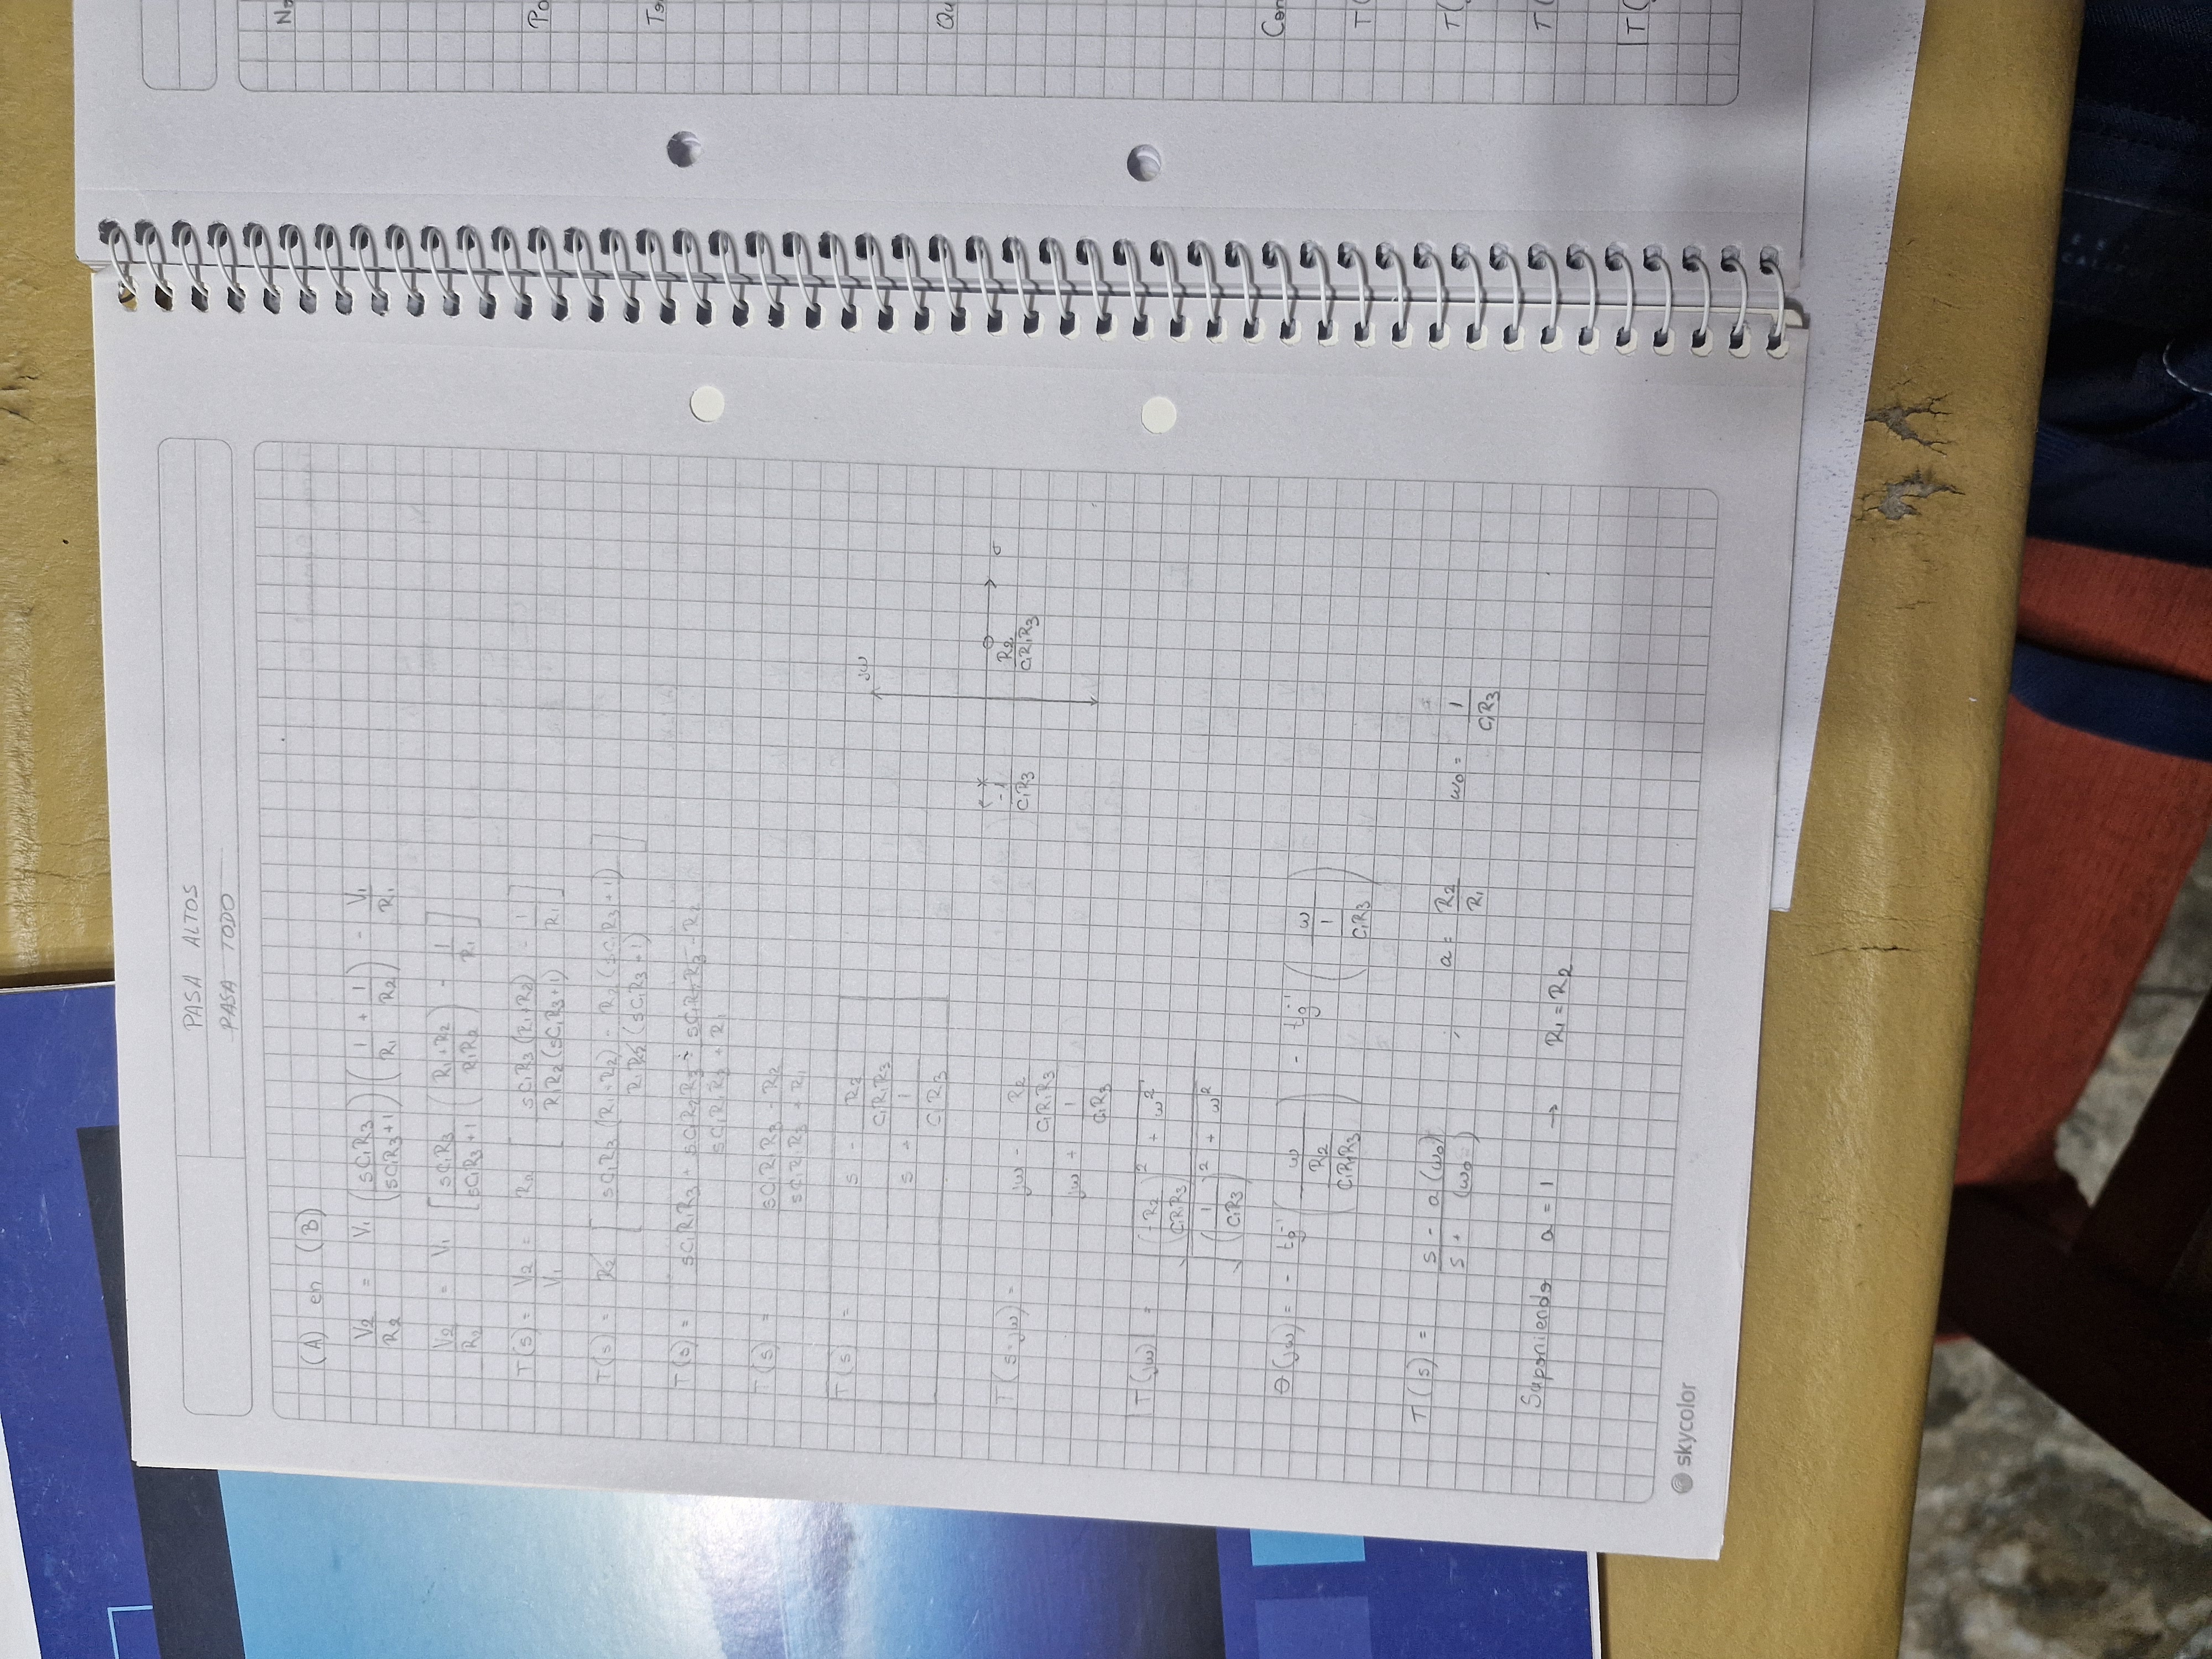 PASA ALTOS
PASA TODO
(A) en (B)
V2/R2 = V1 (sC1R3/(sC1R3+1)) (1/R1 + 1/R2) - V1/R1
V2/R2 = V1 [sC1R3/(sC1R3+1) ((R1+R2)/(R1R2)) - 1/R1]
T(s) = V2/V1 = R2 [sC1R3(R1+R2)/(R1R2(sC1R3+1)) - 1/R1]
T(s) = R2 [(sC1R3(R1+R2) - R2(sC1R3+1))/(R1R2(sC1R3+1))]
T(s) = (sC1R1R3 + sC1R2R3 - sC1R2R3 - R2)/(sC1R1R3 + R1)
T(s) = (sC1R1R3 - R2)/(sC1R1R3 + R1)
T(s) = (s - R2/(C1R1R3))/(s + 1/(C1R3))
jω
σ
-1/(C1R3)
R2/(C1R1R3)
T(s=jω) = (jω - R2/(C1R1R3))/(jω + 1/(C1R3))
|T(jω)| = √((-R2/(C1R1R3))² + ω²)/√((1/(C1R3))² + ω²)
θ(jω) = - tg⁻¹(ω/(R2/(C1R1R3))) - tg⁻¹(ω/(1/(C1R3)))
T(s) = (s - a(ω0))/(s + (ω0)) ; a = R2/R1 ω0 = 1/(C1R3)
Suponiendo a = 1 → R1 = R2
skycolor
Po
Qu
Con
T(
T(
T(
|T(